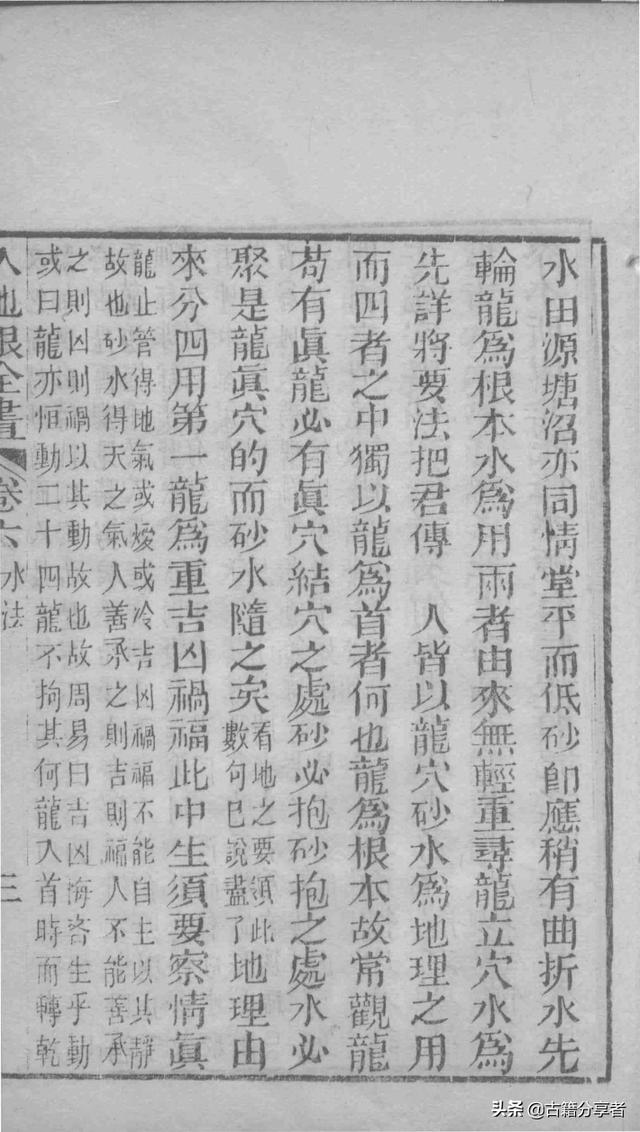 水田源塘沼亦同情堂平而低砂卽應稍有曲折水先
輪龍爲根本水爲用兩者由來無輕重尋龍立穴水爲
先詳將要法把君傳　人皆以龍穴砂水爲地理之用
而四者之中獨以龍爲首者何也龍爲根本故常觀龍
苟有眞龍必有眞穴結穴之處砂必抱砂抱之處水必
聚是龍眞穴的而砂水隨之矣
看地之要須此
數句已說盡了
地理由
來分四用第一龍爲重吉凶禍福此中生須要察情眞
龍止管得地氣或煖或冷吉凶禍福不能自主以其靜
故也砂水得天之氣人善承之則吉則福人不能善承
之則凶則禍以其動故也故周易曰吉凶悔吝生乎動
或曰龍亦恒動二十四龍不拘其何龍入首時而轉乾
人地眼全書 卷六 水法 三
头条 @古籍分享者